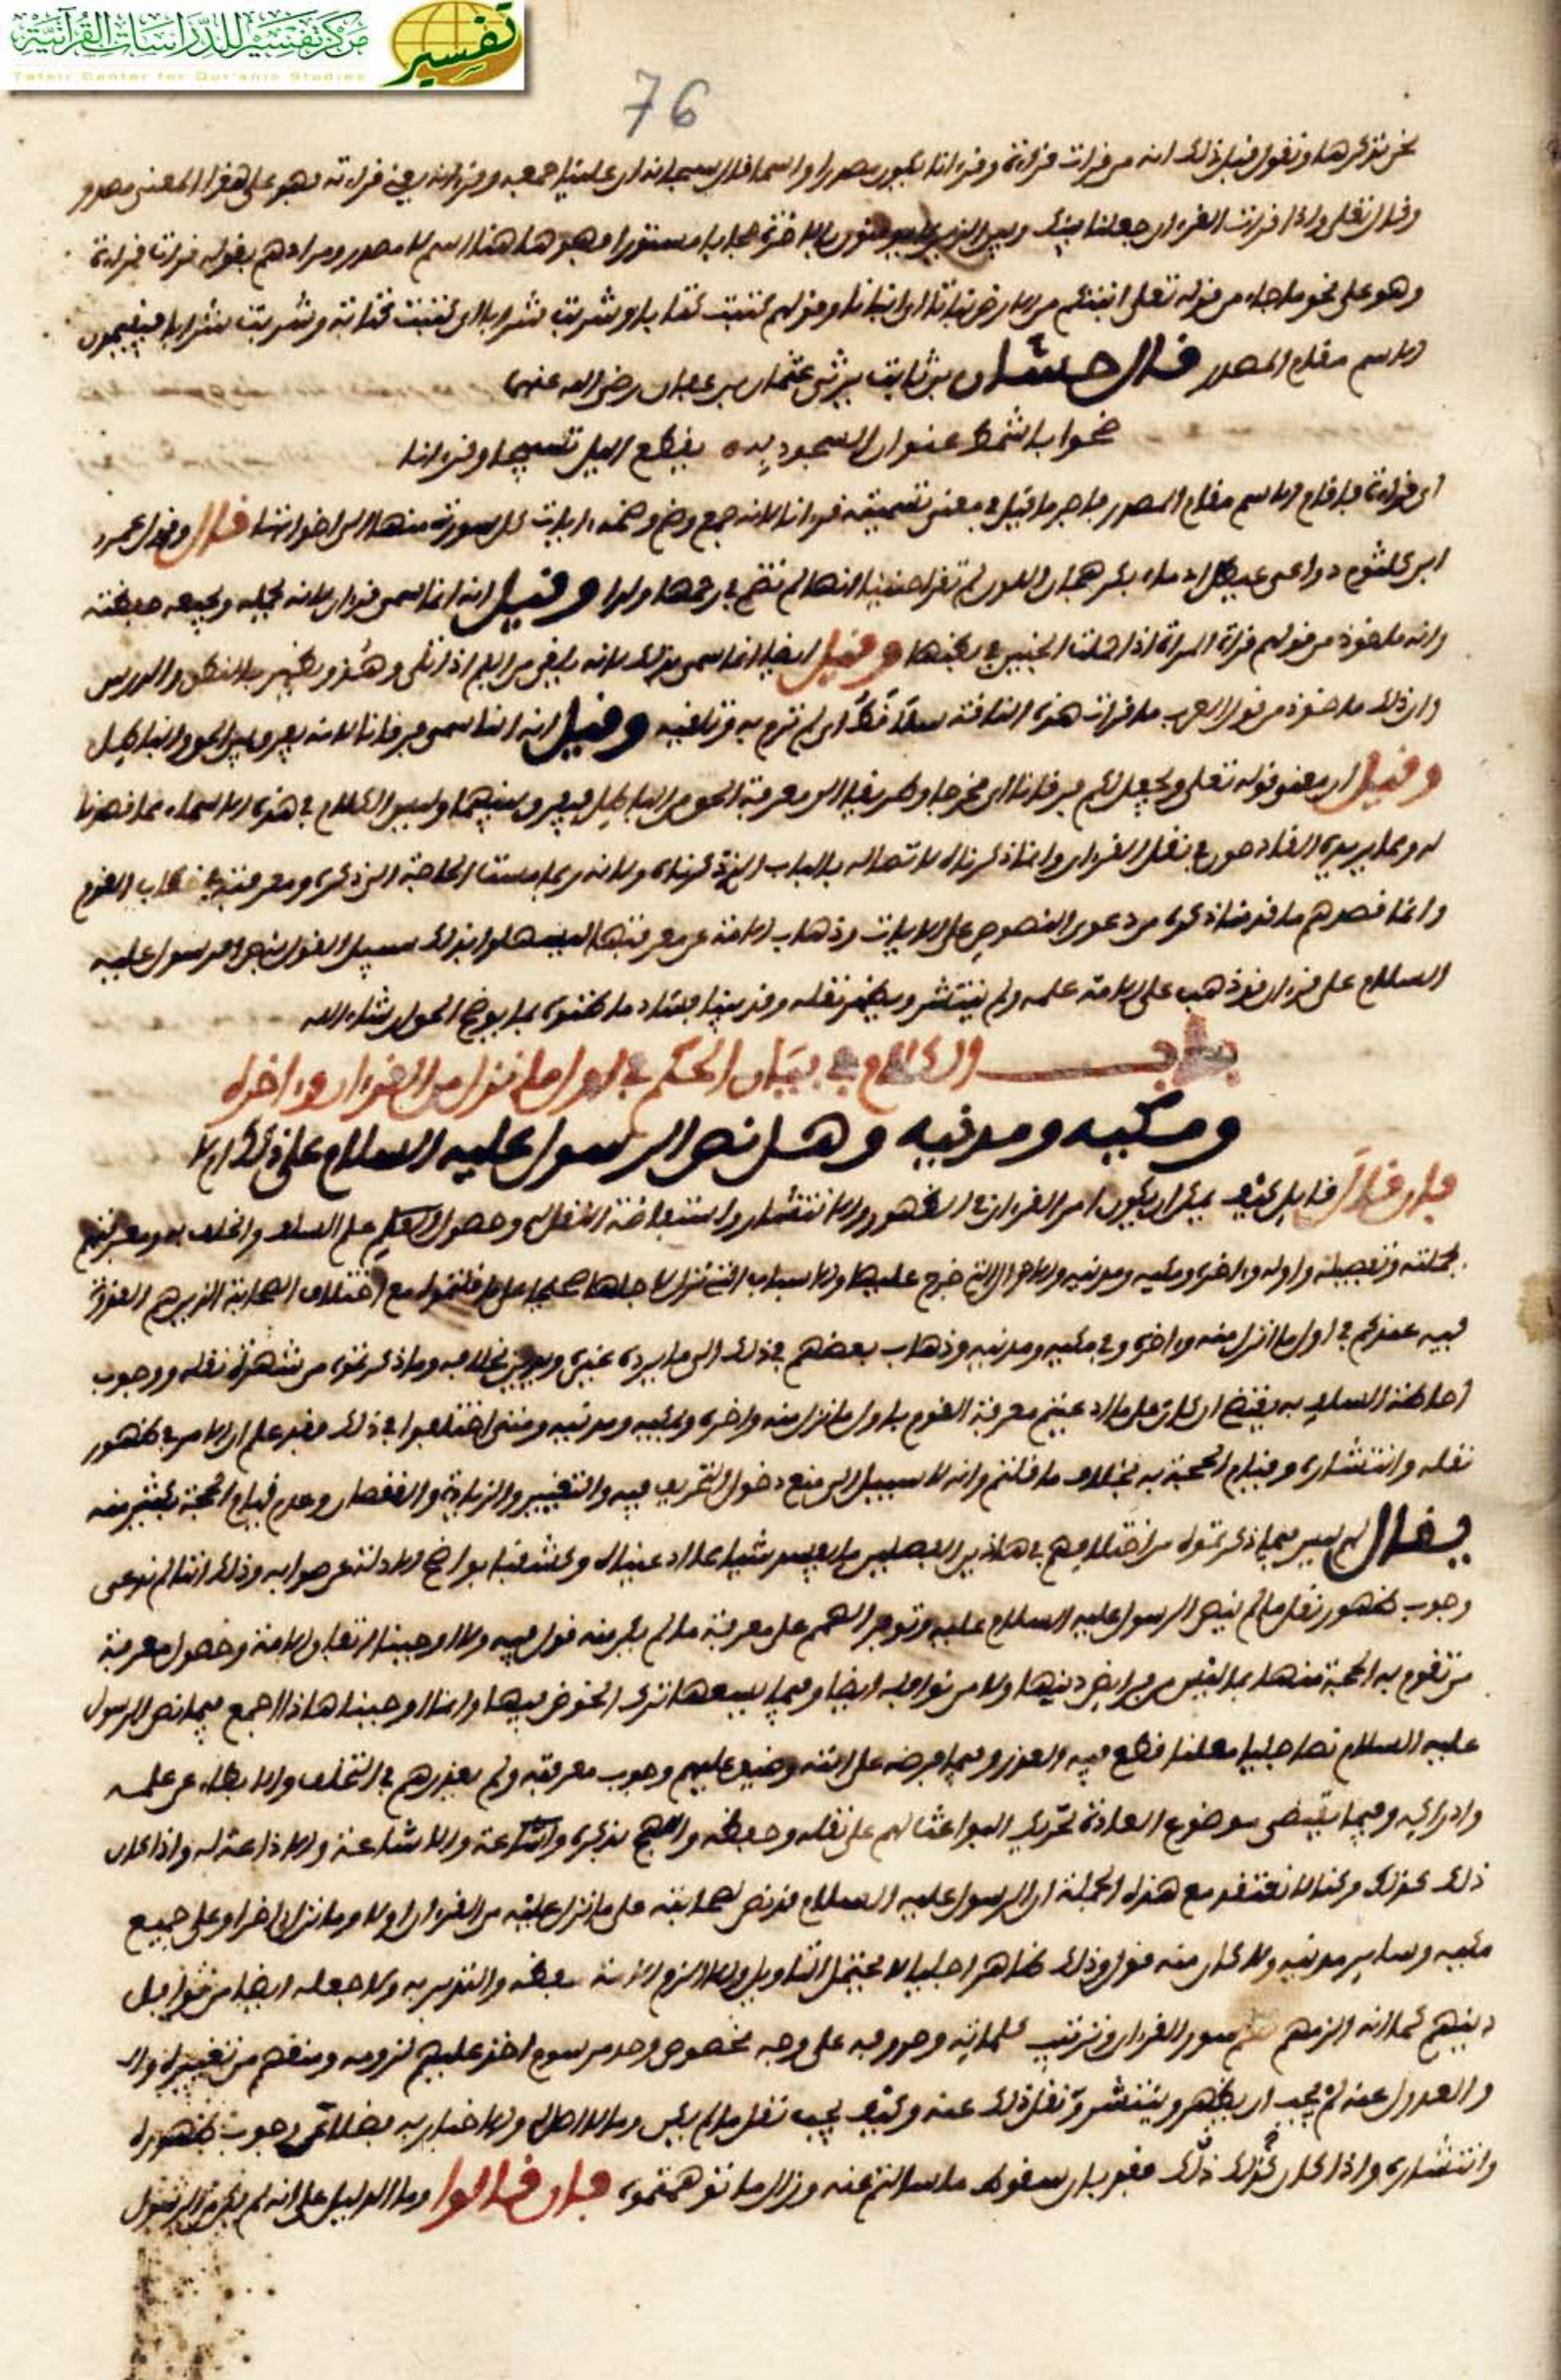 مركز تفسير للدراسات القرآنية
Tafsir Center for Qur'anic Studies
تفسير
76
نحن نذكرها ونقول قبل ذلك انه من قرات قراءة وقرءانا يكون مصدرا واسما قال سبحانه ان علينا جمعه وقرءانه يعني قراءته فهو على هذا المعنى مصدر
وقال تعلى واذا قرات القرءان جعلنا بينك وبين الذين لا يومنون بالاخرة حجابا مستورا فهو هاهنا اسم لا مصدر ومرادهم بقوله قرات قراءة
وهو على نحو ما جاء من قوله تعلى انبتكم من الارض نباتا اي انباتا وقولهم كتبت كتابا وشربت شرابا اي كتبت كتابة وشربت شرابا فيقيمون
الاسم مقام المصدر قال حسان بن ثابت يرثي عثمان بن عفان رضي الله عنهما
ضحوا باشمط عنوان السجود به يقطع اليل تسبيحا وقرءانا
اي قراءة فاقام الاسم مقام المصدر فاجر ما قيل في معنى تسميته قرءانا لانه جمع وضم وضمه ءايات كل سورة منها الى اخواتها قال وقول عمرو
ابن كلثوم ذراعي عيطل ادماء بكر هجان اللون لم تقرا جنينا انها لم تضم في رحمها ولدا وقيل انه انما سمي قرءان لانه
وانه ماخوذ من قولهم قرات المراة اذا الجنين في بطنها وقيل ايضا انما سمي بذلك لانه
وان ذلك ماخوذ من قول العرب ما قرات هذه الناقة سلا قط اي لم ترم به وتلقيه وقيل انه انما سمي فرقانا لانه يفرق بين الحق والباطل
وقيل ان معنى قوله تعلى ويجعل لكم فرقانا اي مخرجا وطريقا الى معرفة الحق من الباطل فيفرق بينهما وليس الكلام في هذه الاسماء مما قصدنا
له ومما يريده القادحون في نقل القرءان وانما ذكرناه لاتصاله بالباب الذي ذكرناه ولانه ربما مست الحاجة الى ذكره ومعرفته في خطاب القوم
وانما قصدهم ما قدمنا ذكره من دعوى النصوص على الايات وذهاب الامة عن معرفتها ليسهلوا بذلك سبيل القول بنص الرسول عليه
السلام على قرءان قد ذهب على الامة علمه ولم ينتشر ويظهر نقله وقد بينا فساد ما ظنوه بما يوضح الحق ان شاء الله
باب الكلام في بيان الحكم في اول ما نزل من القرءان واخره
ومكيه ومدنيه وهل نص الرسول عليه السلام على ذلك ام لا
فان قال قايل كيف يمكن ان يكون امر القرءان في الظهور والانتشار واستفاضة النقل له وحصول العلم على السلف والخلف به ومعرفتهم
بجملته وتفصيله واوله واخره ومكيه ومدنيه والاحوال التي خرج عليها والاسباب التي نزل لاجلها على ما قلتموه مع اختلاف الصحابة الذين هم القدوة
فيه عندكم في اول ما انزل منه واخره وفي مكيه ومدنيه وذهاب بعضهم في ذلك الى ما يرده غيره ويدين بخلافه وما ذكرتموه من شهرة نقله ووجوب
احاطة السلف به يقتضي ان كان على ما ادعيتم معرفة القوم باول ما نزل منه واخره ومكيه ومدنيه ومتى اختلفوا في ذلك فقد علم ان الامر في ظهور
نقله وانتشاره وقيام الحجة به بخلاف ما قلتم وانه لا سبيل الى منع دخول التحريف فيه والتغيير والزيادة والنقصان وعدم قيام الحجة بكثير منه
يقال لهم ليس فيما ذكرتموه من اختلافهم في هاذين الفصلين ما يفسد شيا مما ادعيناه وكشفنا بواضح الادلة عن صوابه وذلك اننا لم ندعي
وجوب ظهور نقل ما لم ينص الرسول عليه السلام عليه وتوفر الهمم على معرفة ما لم يكن منه قول فيه ولا اوجبنا اتفاق الامة وحصول معرفة
من تقوم به الحجة منها بما ليس من فرايض دينها ولا من نوافله ايضا وفيما يسعها ترك الخوض فيها وانما اوجبنا هاذا اجمع فيما نص الرسول
عليه السلام نصا جليا معلنا قطع فيه العذر وفيما فرضه على امته وضيق عليهم وجوب معرفته ولم يعذرهم في التخلف والابطاء عن علمه
وادراكه وفيما يقتضي موضوع العادة تحريك البواعث لهم على نقله وحفظه واللهج بذكره والاشاعة والاذاعة له واذا كان
ذلك كذلك وكنا لا نعتقد مع هذه الجملة ان الرسول عليه السلام قد نص لصحابته على ما نزل عليه من القرءان اولا وما نزل اخرا وعلى جميع
مكيه وساير مدنيه ولا كان منه قول وذلك ظاهرا جليا لا يحتمل التاويل ولا الزم الامة حفظه والتدين به ولا جعله ايضا من نوافل
دينهم كما انه الزمهم نظم سور القرءان وترتيب كلماته وحروفه على وجه مخصوص وحد مرسوم اخذ عليهم لزومه ومنعهم من تغييره وال
والعدول عنه لم يجب ان يظهر وينتشر نقل ذلك عنه وكيف يجب نقل ما لم يكن وما لا اصل له والاخبار به فضلا عن وجوب ظهوره
وانتشاره واذا كان كذلك ذلك فقد بان سقوط ما سالتم عنه وزال ما توهمتموه فان قالوا وما الدليل على انه لم يكن من الرسول